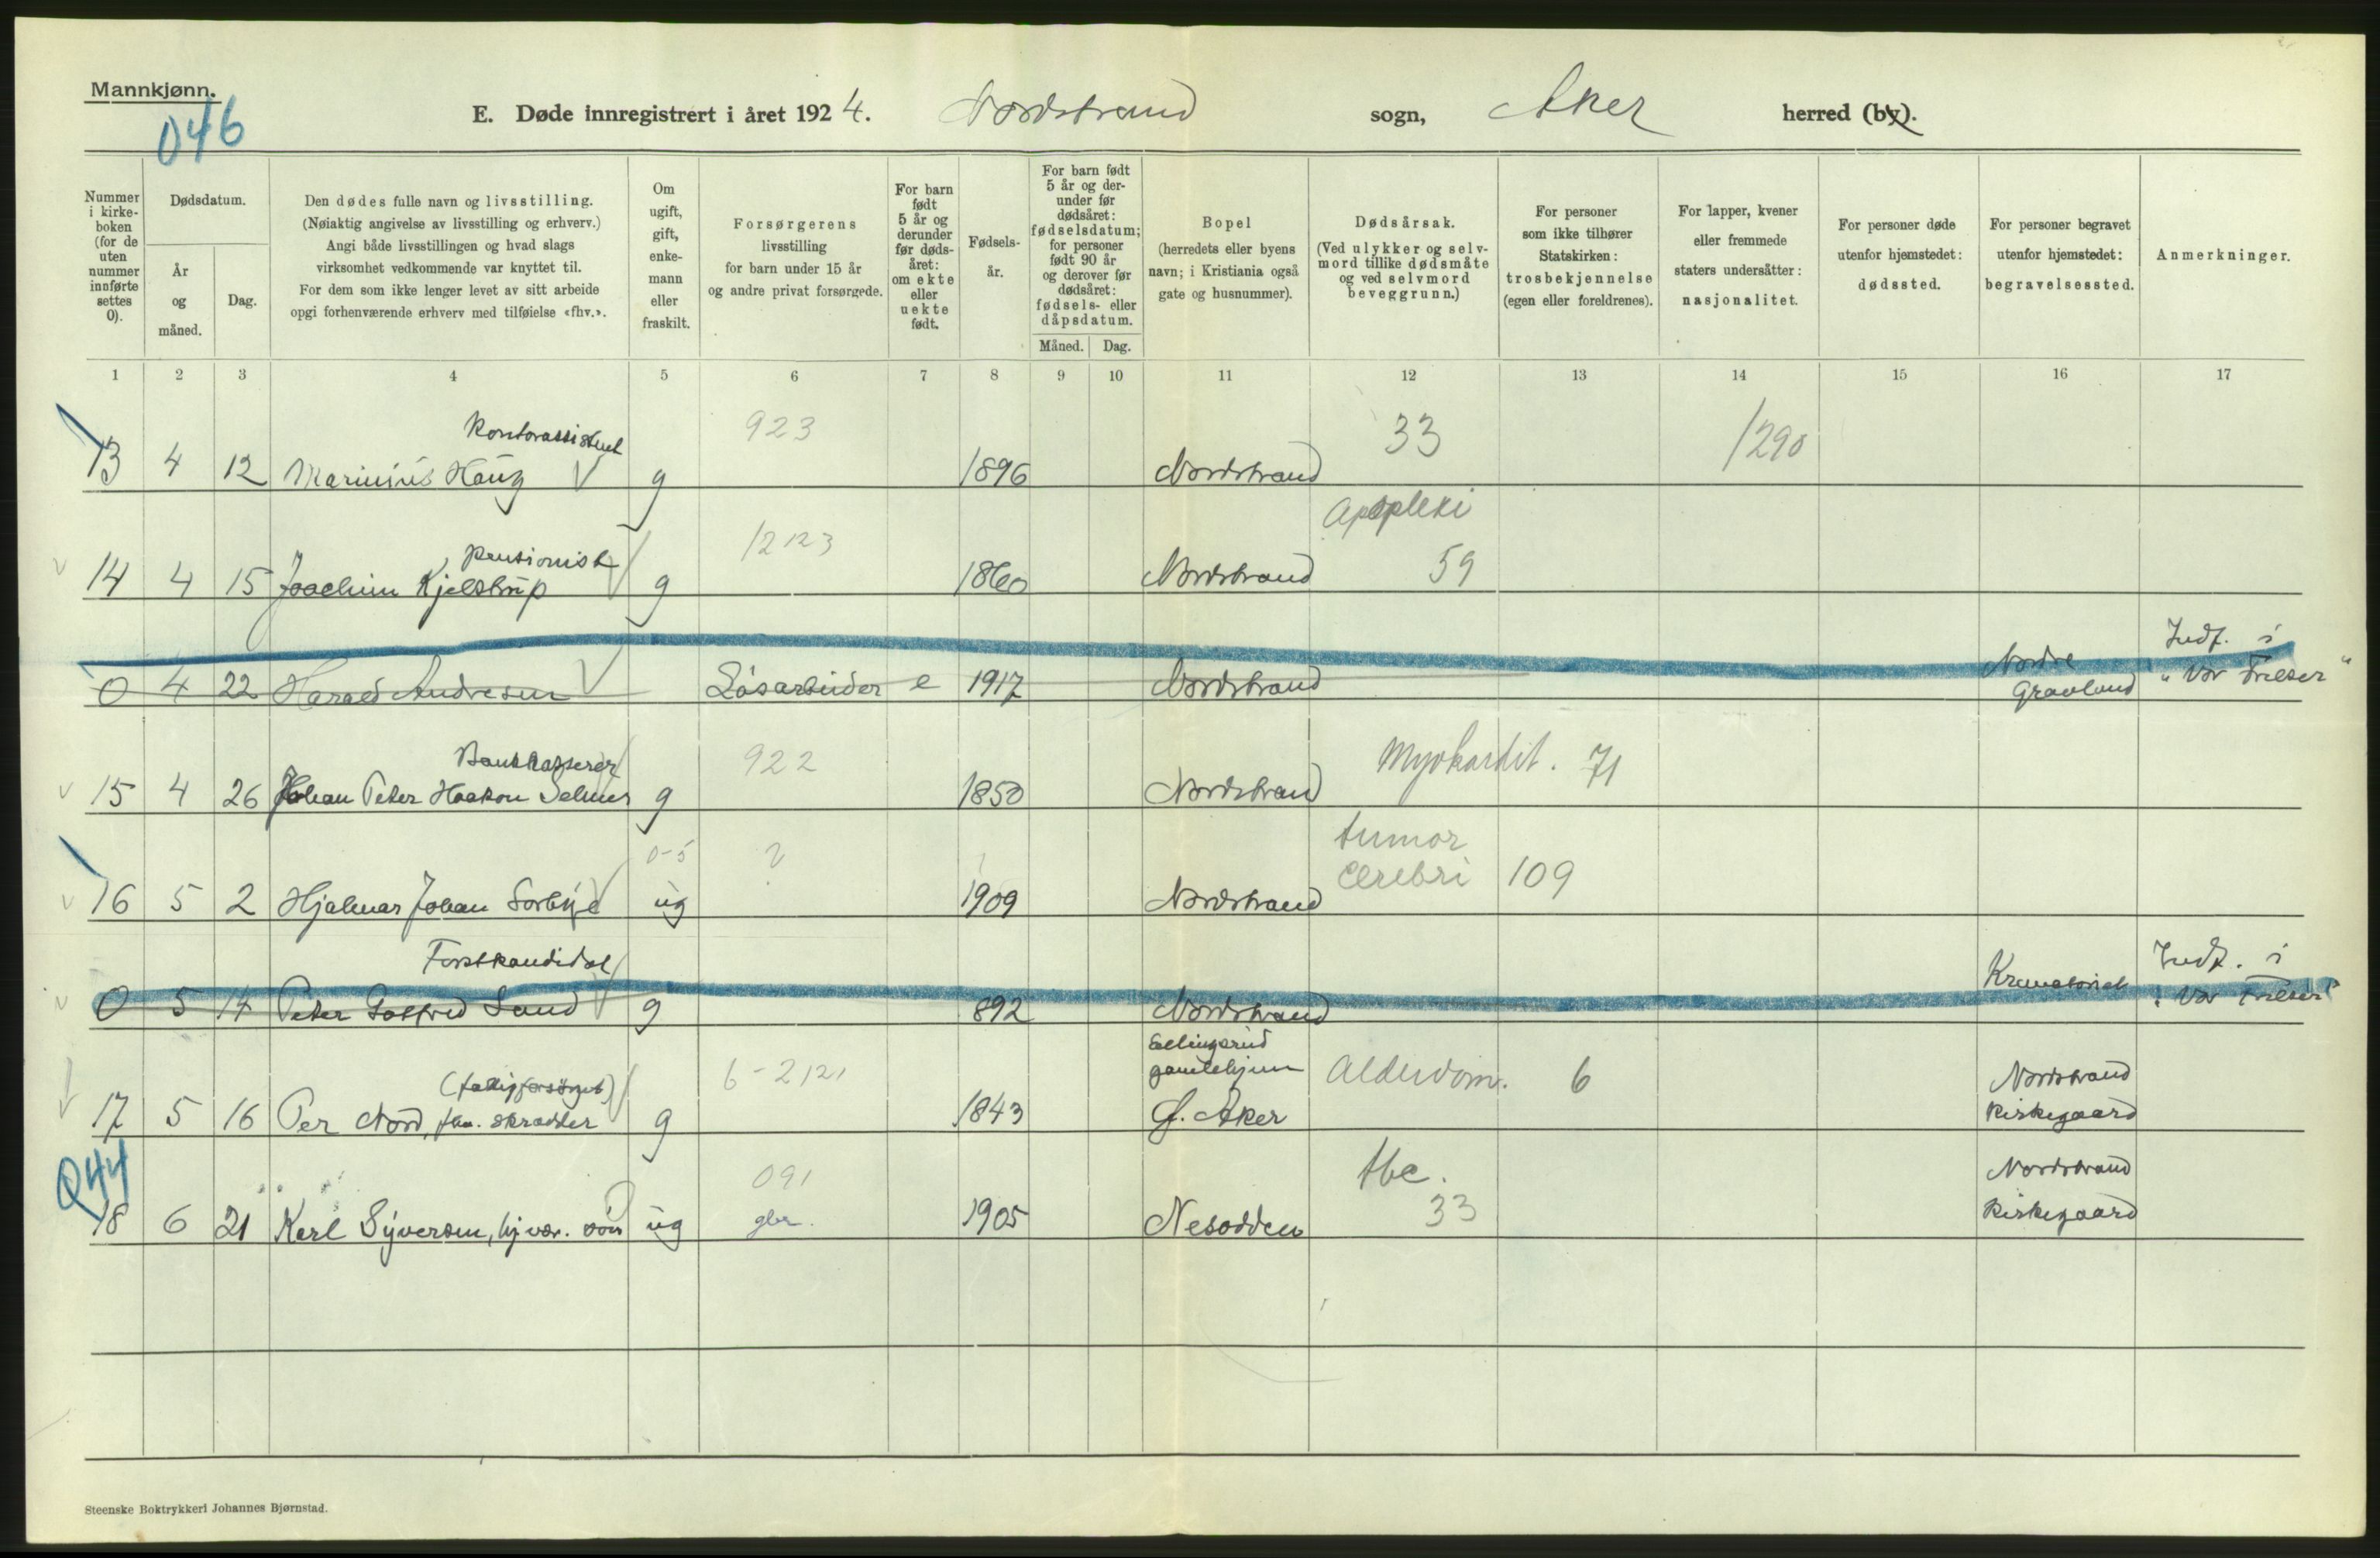 Mannkjønn.
046
E. Døde innregistrert i året 1924. Nordstrand sogn, Aker herred (by).
Nummer i kirke-boken (for de uten nummer innførte settes 0).
Dødsdatum.
År og måned.
Dag.
Den dødes fulle navn og livsstilling.
(Nøiaktig angivelse av livsstilling og erhverv.)
Angi både livsstillingen og hvad slags
virksomhet vedkommende var knyttet til.
For dem som ikke lenger levet av sitt arbeide
opgi forhenværende erhverv med tilføielse «fhv.».
Om ugift, gift, enke-mann eller fraskilt.
Forsørgerens
livsstilling
for barn under 15 år
og andre privat forsørgede.
For barn født 5 år og derunder før døds-året: om ekte eller uekte født.
Fødsels-år.
For barn født 5 år og der-under før dødsåret: fødselsdatum; for personer født 90 år og derover før dødsåret: fødsels- eller dåpsdatum.
Måned. Dag.
Bopel
(herredets eller byens
navn; i Kristiania også
gate og husnummer).
Dødsårsak.
(Ved ulykker og selv-
mord tillike dødsmåte
og ved selvmord
beveggrunn.)
For personer
som ikke tilhører
Statskirken:
trosbekjennelse
(egen eller foreldrenes).
For lapper, kvener
eller fremmede
staters undersåtter:
nasjonalitet.
For personer døde
utenfor hjemstedet:
dødssted.
For personer begravet
utenfor hjemstedet:
begravelsessted.
Anmerkninger.
1 2 3 4 5 6 7 8 9 10 11 12 13 14 15 16 17
Kontorassistent 923 33 1290
13 4 12 Marinius Haug g 1896 Nordstrand
Apoplexi
pensionist 12123
14 4 15 Joachim Kjelstrup g 1860 Nordstrand 59
Nordre Indf. i
0 4 22 Harald Andresen Løsarbeider e 1917 Nordstrand Gravlund "Vor Frelser"
Bankkasserer 922 Myokardit. 71
15 4 26 Johan Peter Haakon Selmer g 1850 Nordstrand
0-5 ? tumor
cerebri 109
16 5 2 Hjalmar Johan Sørbye ug 1909 Nordstrand
Forstkandidat Krematoriet Indf. i
0 5 14 Peter Gotfred Sand g 892 Nordstrand "Vor Frelser"
Ellingsrud
(fattigforsørget) 6-2121 gamlehjem Alderdom. 6 Nordstrand
17 5 16 Per Nord, fhv. skrædder g 1843 Ø. Aker Kirkegaard
Q44
091 tbc. Nordstrand
18 6 21 Karl Syversen, hj.vær. søn ug gbr. 1905 Nesodden 33 Kirkegaard
Steenske Boktrykkeri Johannes Bjørnstad.